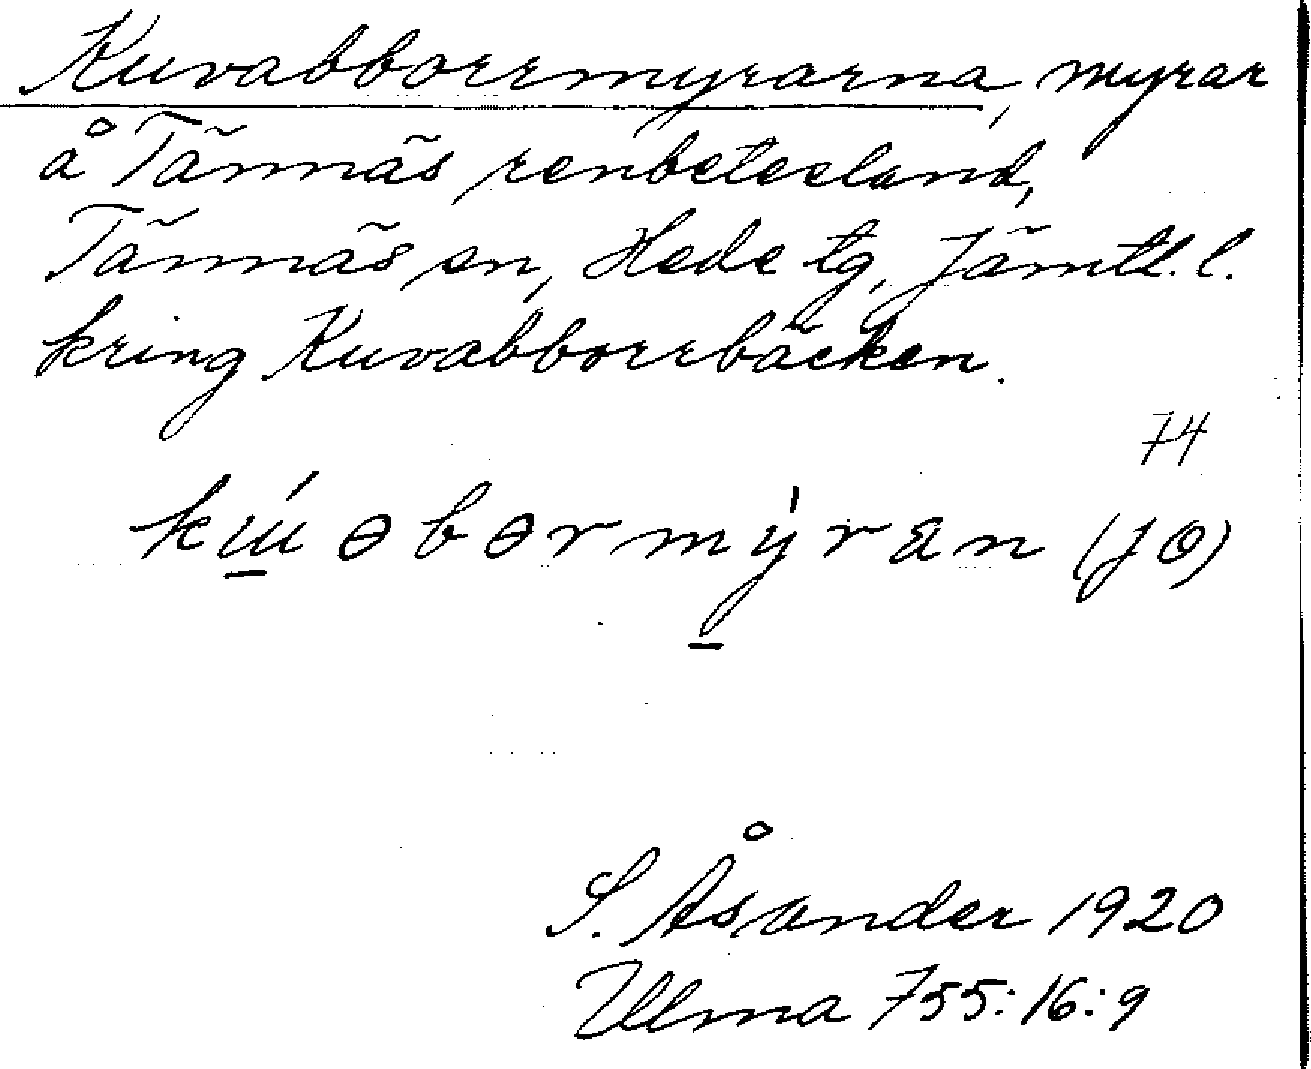 Kuvabborrmyrarna, myrar
å Tännäs renbetesland,
Tännäs sn, Hede tg, Jämtl. l.
kring Kuvabborrbäcken.
74
kɯ́ɵbɵrmy̍ran (JÖ)
S. Åsander 1920
Ulma 755:16:9